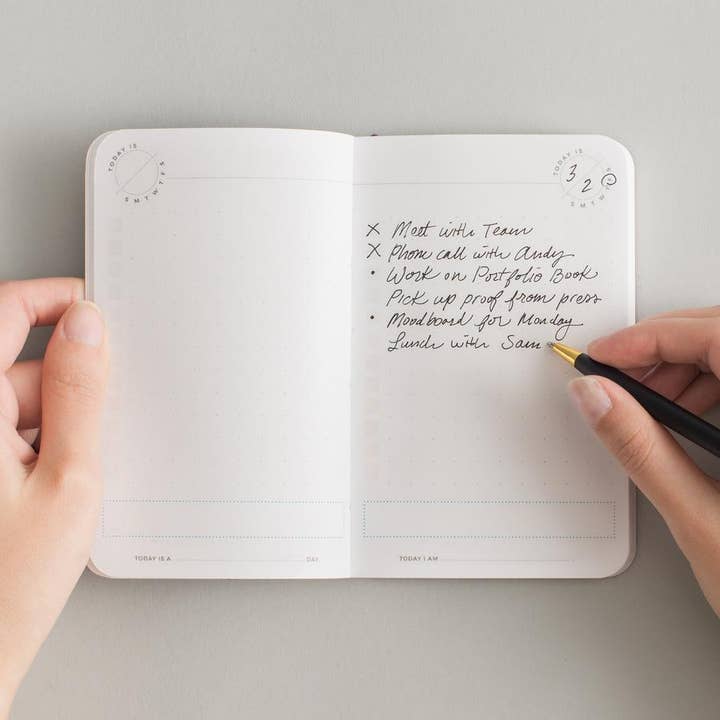 TODAY IS
S M T W T F S
TODAY IS A DAY
TODAY IS
3 2
S M T W T F S
X Meet with Team
X Phone call with Andy
• Work on Portfolio Book
Pick up proof from press
• Moodboard for Monday
Lunch with Sam
TODAY I AM